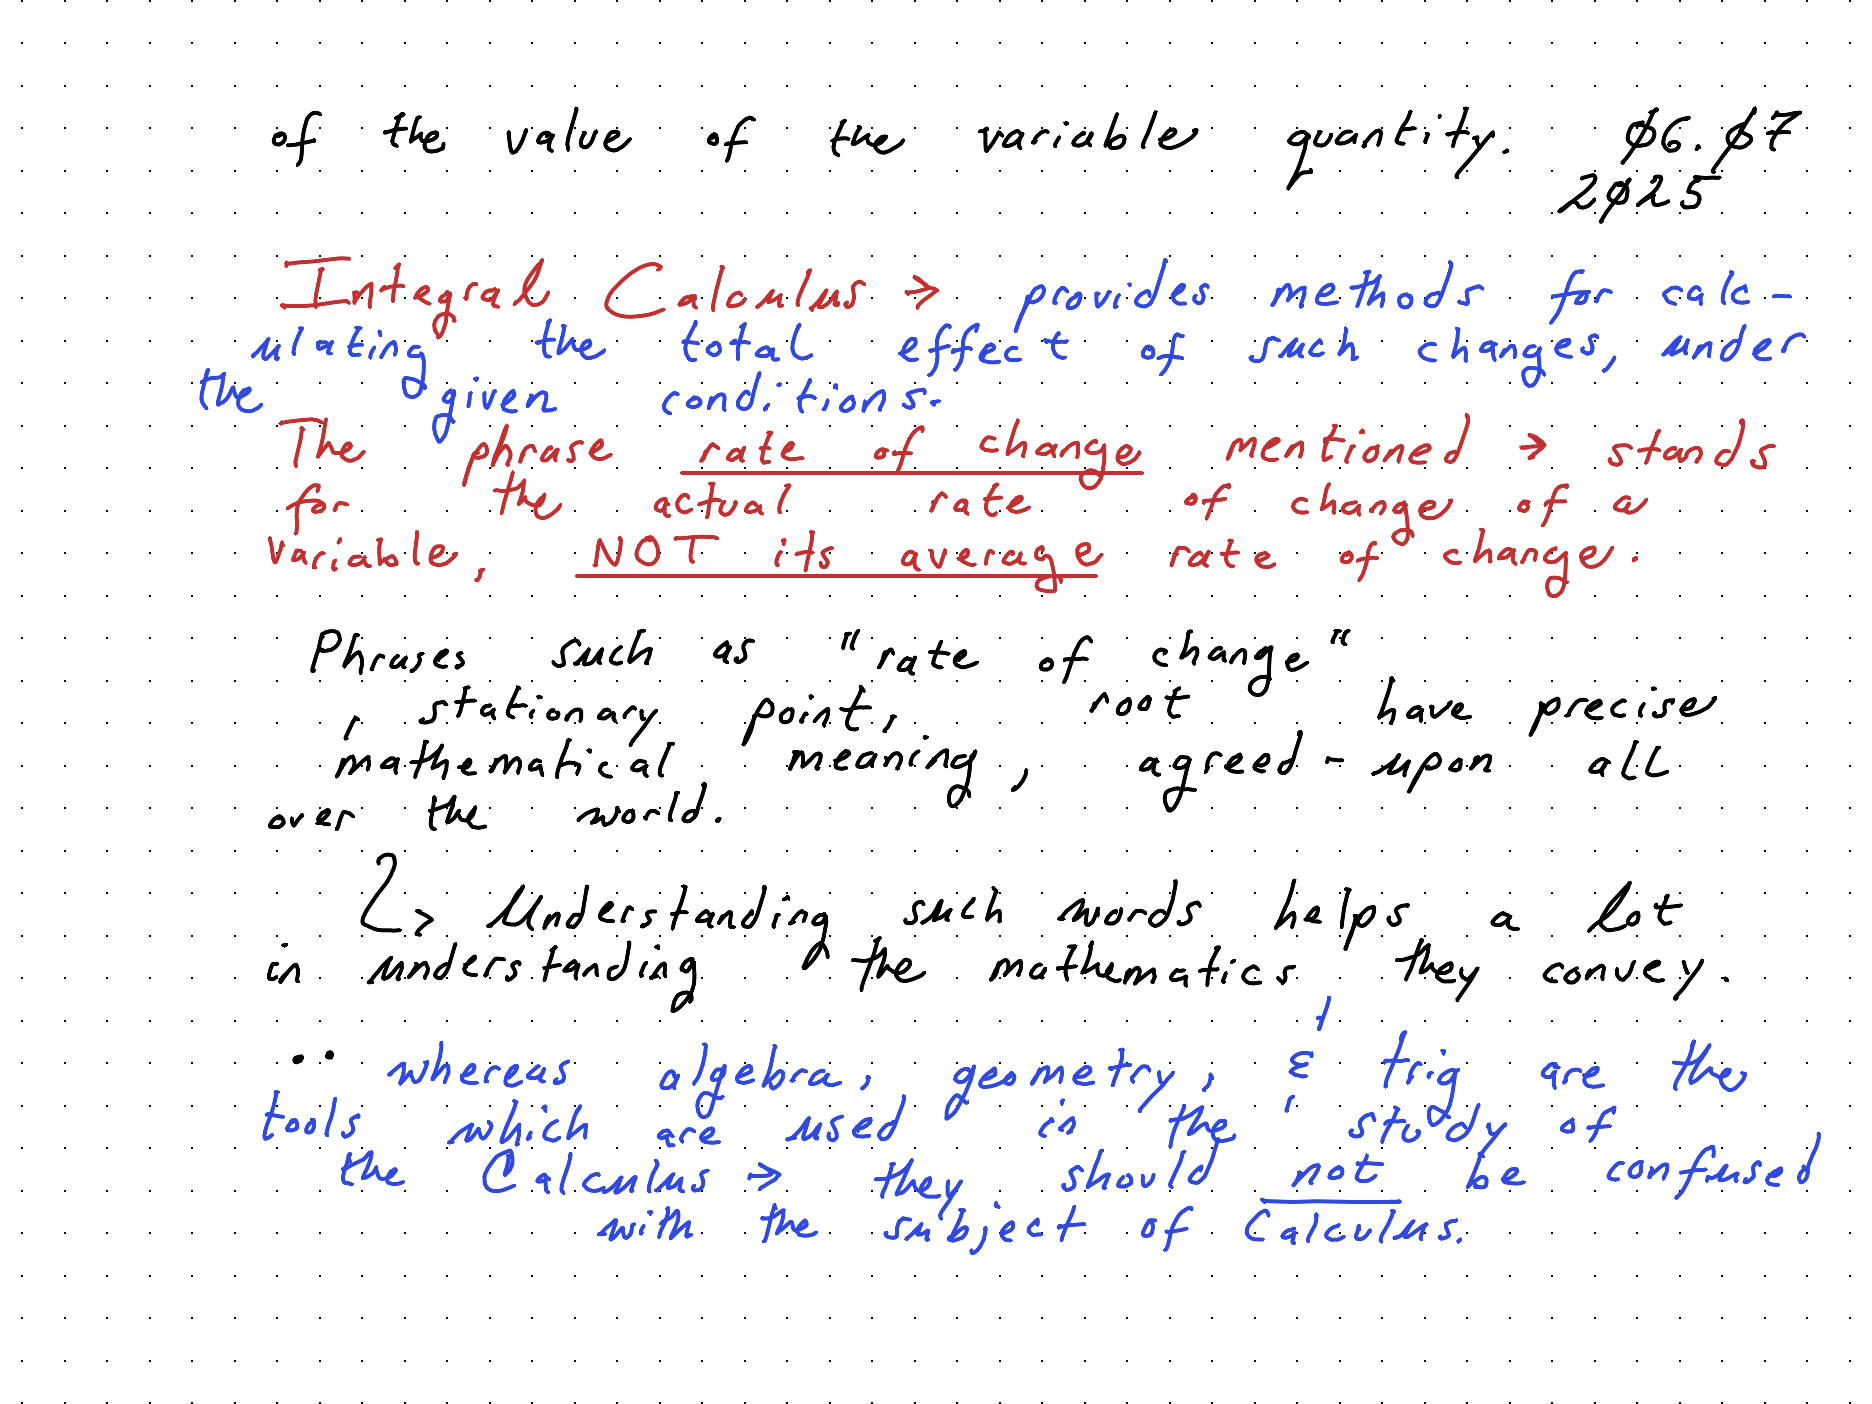 of the value of the variable quantity. Ø6.Ø7
2Ø25
Integral Calculus → provides methods for calc-
ulating the total effect of such changes, under
the given conditions.
The phrase rate of change mentioned → stands
for the actual rate of change of a
variable, NOT its average rate of change.
Phrases such as "rate of change"
, stationary point, root have precise
mathematical meaning, agreed-upon all
over the world.
↳ Understanding such words helps a lot
in understanding the mathematics they convey.
•• whereas algebra, geometry, & trig are the
tools which are used in the study of
the Calculus → they should not be confused
with the subject of Calculus.